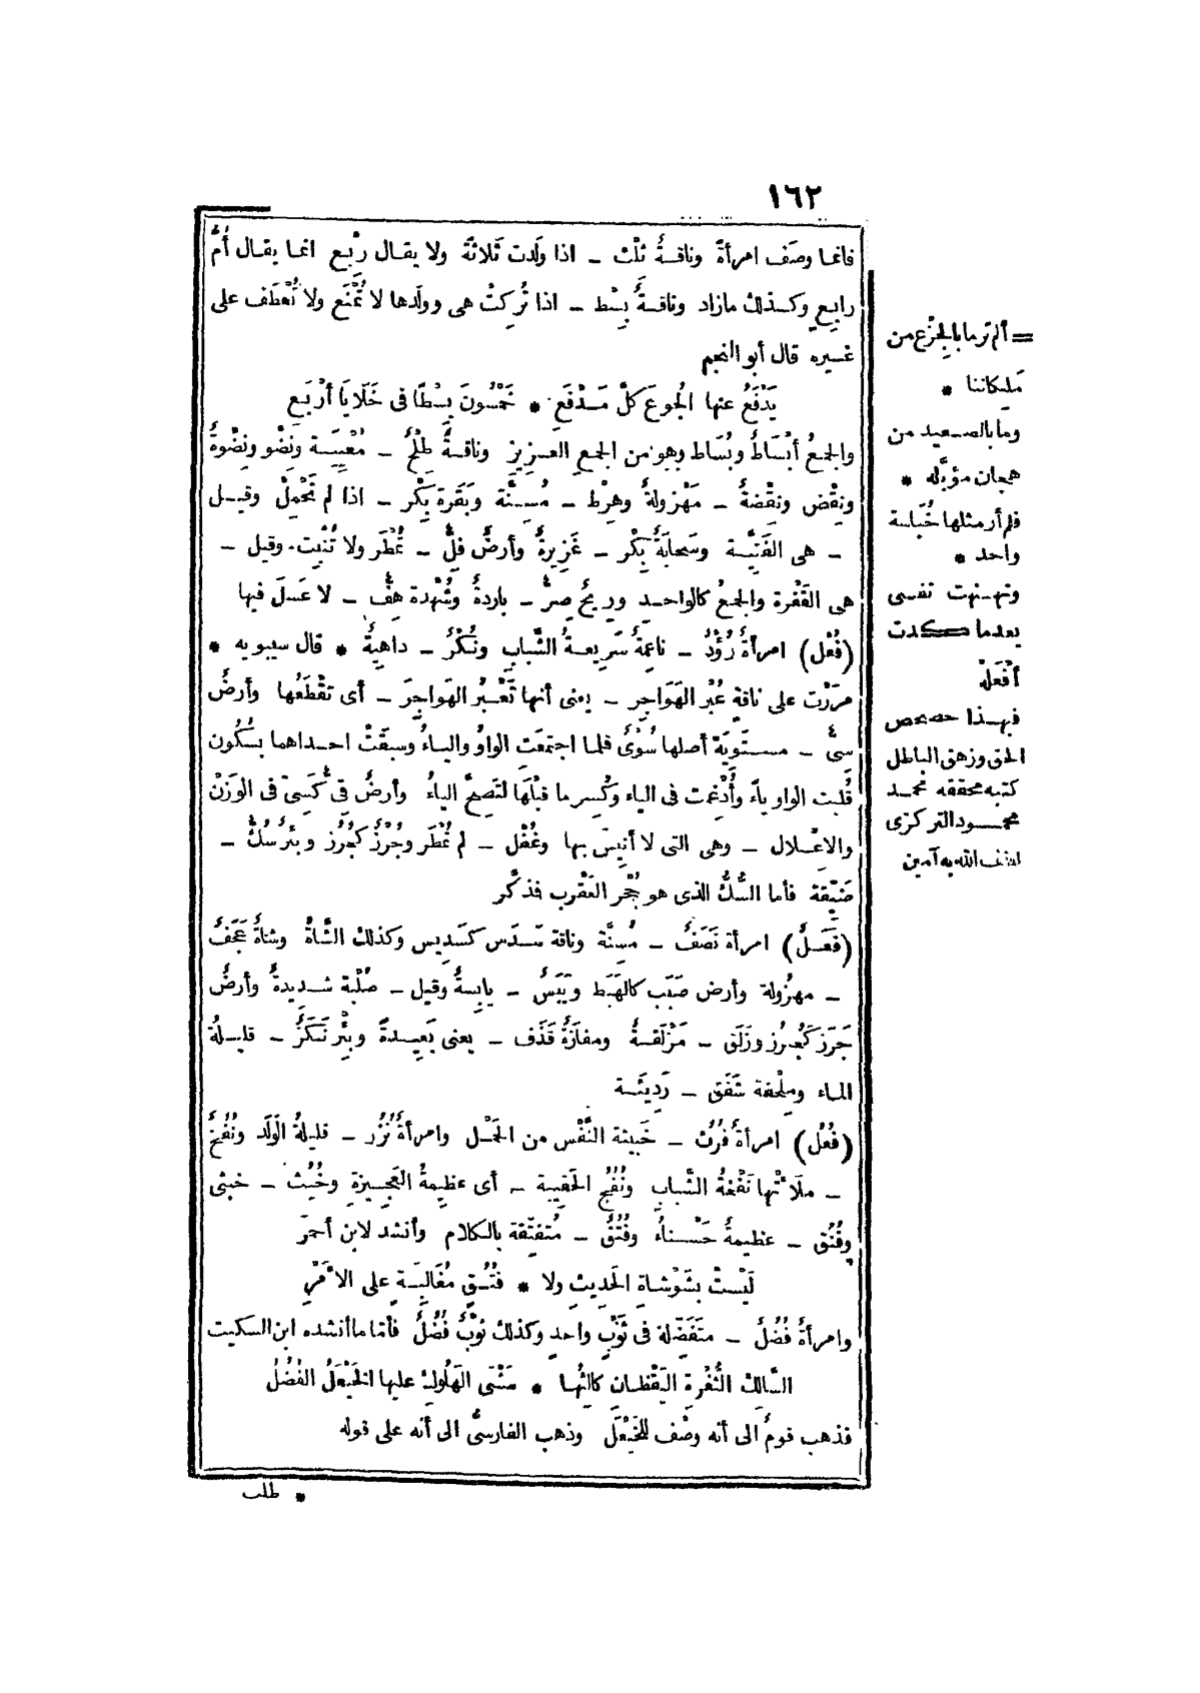 ١٦٢
فانما وصَف امرأةً وناقةٌ ثِلْث ـ اذا ولَدت ثَلاثةً ولا يقال رِبْع انما يقال أُمُّ
رابِعٍ وكذلك مازاد وناقةٌ بِسْط ـ اذا تُرِكتْ هى وولَدها لا تُمْنَع ولا تُعْطَف على
غيره قال أبو النجم
يَدْفَعُ عنها الجُوعَ كلَّ مَدْفَعِ * خَمْسُونَ بِسْطًا فى خَلَايَا أَرْبَعِ
والجمعُ أبْسَاطٌ وبُسَاط وهو من الجمع العزيز وناقةٌ طِلْحٌ ـ مُعْيِيَة ونِضْو ونِضْوةٌ
ونِقْض ونِقْضةٌ ـ مَهْزولةٌ وهِرْط ـ مُسِنَّة وبَقَرة بِكْر ـ اذا لم تَحْمِلْ وقيل
ـ هى الفَتِيَّة وسَحابَةٌ بِكْر ـ غَزِيرةٌ وأرضٌ فِلٌّ ـ تُمْطَر ولا تُنْبِت وقيل ـ
هى القَفْرة والجمعُ كالواحد وريحٌ صِرٌّ ـ باردةٌ وشُهْدة هِفٌّ ـ لا عَسَلَ فيها
(فُعْل) امرأةٌ رُؤْدٌ ـ ناعِمةٌ سَرِيعةُ الشَّبابِ ونُكْرٌ ـ داهِيَةٌ * قال سيبويه *
مررْت على ناقةٍ عُبْرِ الهَوَاجِرِ ـ يعنى أنها تَعْبُر الهَواجِرَ ـ أى تقْطَعُها وأرضٌ
سِىٌّ ـ مستَوِيَة أصلها سُوْىٌ فلما اجتمعَت الواوُ والياءُ وسبقَتْ احداهما بسُكُون
قُلبت الواو ياءً وأُدْغِمت فى الياء وكُسِر ما قبْلَها لتَصِحَّ الياءُ وأرضٌ قِىٌّ كَسِىّ فى الوَزْن
والاعْلال ـ وهى التى لا أنِيسَ بها وغُفْل ـ لم تُمْطَر وجُرْزٌ كجُرُز وبئر سُكٌّ ـ
ضَيِّقة فأما السُّكُّ الذى هو جُحْر العَقْرب فذكَّر
(فَعَلٌ) امرأة نَصَفٌ ـ مُسِنَّة وناقة سَدَس كسَدِيس وكذلك الشَّاةُ وشاةٌ عَجَفٌ
ـ مهزُولة وأرض صَبَب كالهَبَط ويَبَسٌ ـ يابِسةٌ وقيل ـ صُلْبة شديدةٌ وأرضٌ
جَرَز كَجُرُز وزَلَق ـ مَزْلَقةٌ ومفازةٌ قَذَف ـ يعنى بَعِيدةً وبِئْر نَكَزٌ ـ قليلةُ
الماء ومِلْحفة شَفَق ـ رَدِيئة
(فُعُل) امرأةٌ فُرُث ـ خَبِيثة النَّفْس من الحَمْل وامرأةٌ نُزُر ـ قليلةُ الوَلَد ونُفُجٌ
ـ ملَأَتْها نَفْخةُ الشَّباب ونُفُج الحَقِيبة ـ أى عظِيمةُ العَجِيزةِ وخُبُث ـ خبثى
وفُنُق ـ عظيمةٌ حَسْناءُ وفُتُقٌ ـ مُتَفتِّقة بالكلام وأنشد لابن أحمرَ
لَيْستْ بشَوْشاةِ الحَدِيثِ ولا * فُتُقٍ مُغَالِبَةٍ على الأَمْرِ
وامرأةٌ فُضُلٌ ـ متَفَضِّلة فى ثَوْبٍ واحدٍ وكذلك ثوْبٌ فُضُلٌ فأمّا ما أنشده ابن السكيت
السَّالِكُ الثُّغْرةَ اليَقْظانَ كالِئُها * مَشْىَ الهَلُوكِ عليها الخَيْعَلُ الفُضُلُ
فذهب قومٌ الى أنه وصْف للخَيْعَل وذهب الفارسىُّ الى أنه على قوله
* طلب
= ألم تر ما بالجِزْع من
مَلِكاننا *
وما بالصعيد من
هجان مؤبَّله *
فلم أر مثلها خُباسة
واحد *
ونهنهت نفسى
بعدما كدت
أفْعَلَهْ
فبهذا حصحص
الحق وزهق الباطل
كتبه محققه محمد
محمود التركزى
لطف الله به آمين